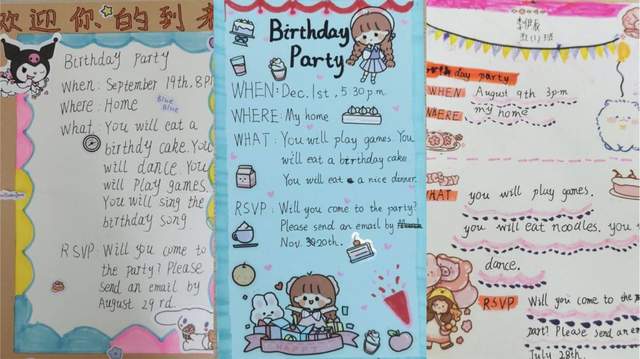 欢迎你的到来
Birthday Party
When: September 19th, 8P
Where: Home
Blue
Blue
What: You will eat a
birthday cake. You
will dance. You
will Play games.
You will sing the
birthday song
RSVP Will you come to
the party? Please
send an email by
August 29 rd.
Birthday
Party
WHEN: Dec. 1st, 5:30 p.m.
WHERE: My home
WHAT: You will play games. You
will eat a birthday cake
You will eat a nice dinner.
RSVP: Will you come to the party?
Please send an email by
Nov. 20th.
HAPPY
birthday party
WHEN August 9th 3pm
WHERE my home
WHAT you will play games.
you will eat noodles. you
dance.
RSVP Will you come to the
part? Please send an em
July 28th.